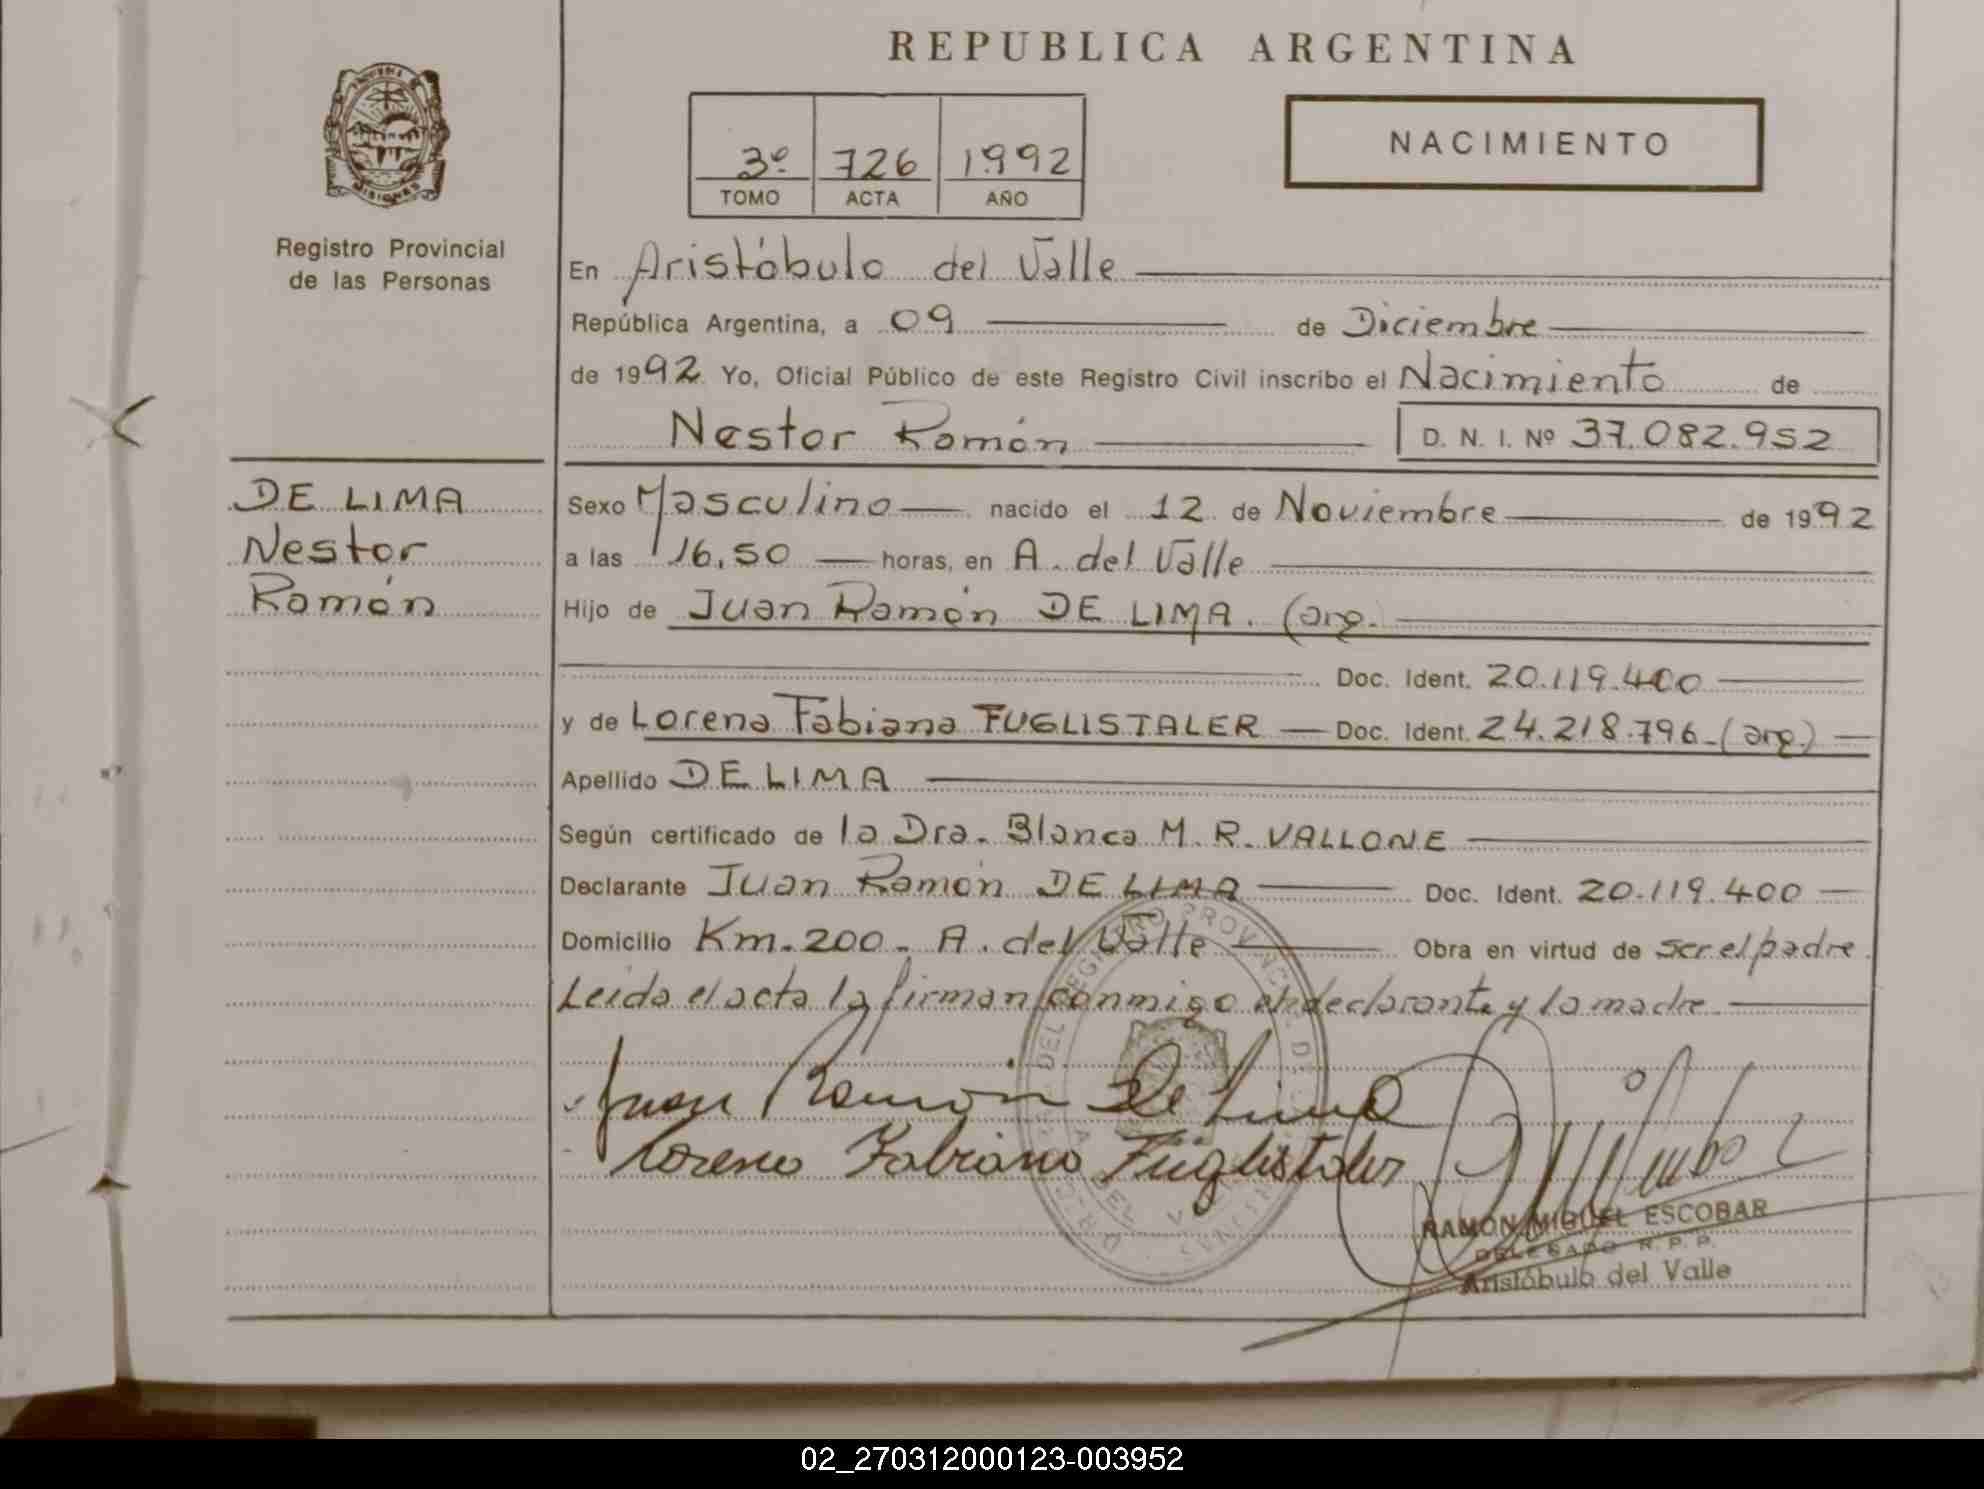 REPUBLICA ARGENTINA
3º 726 1992
TOMO ACTA AÑO
NACIMIENTO
MISIONES
Registro Provincial
de las Personas
En Aristóbulo del Valle
República Argentina, a 09 de Diciembre
de 1992 Yo, Oficial Público de este Registro Civil inscribo el Nacimiento de
Nestor Ramón D. N. I. Nº 37.082.952
DE LIMA
Nestor
Ramón
Sexo Masculino nacido el 12 de Noviembre de 1992
a las 16,50 horas, en A. del Valle
Hijo de Juan Ramón DE LIMA. (arg.
Doc. Ident. 20.119.400
y de Lorena Fabiana FUGLISTALER Doc. Ident. 24.218.796 (arg.)
Apellido DE LIMA
Según certificado de la Dra. Blanca M. R. VALLONE
Declarante Juan Ramón DE LIMA Doc. Ident. 20.119.400
Domicilio Km. 200. A. del Valle Obra en virtud de ser el padre
Leida el acta la firman conmigo el declarante y la madre
Juan Ramón De Lima
Lorena Fabiana Füglistaler
RAMON MIGUEL ESCOBAR
DELEGADO R. P. P.
Aristóbulo del Valle
02_270312000123-003952